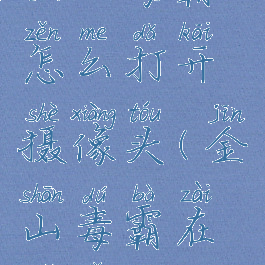 zěn me dǎ kāi
怎么打开
shè xiàng tóu jīn
摄像头(金
shān dú bà zài
山毒霸在